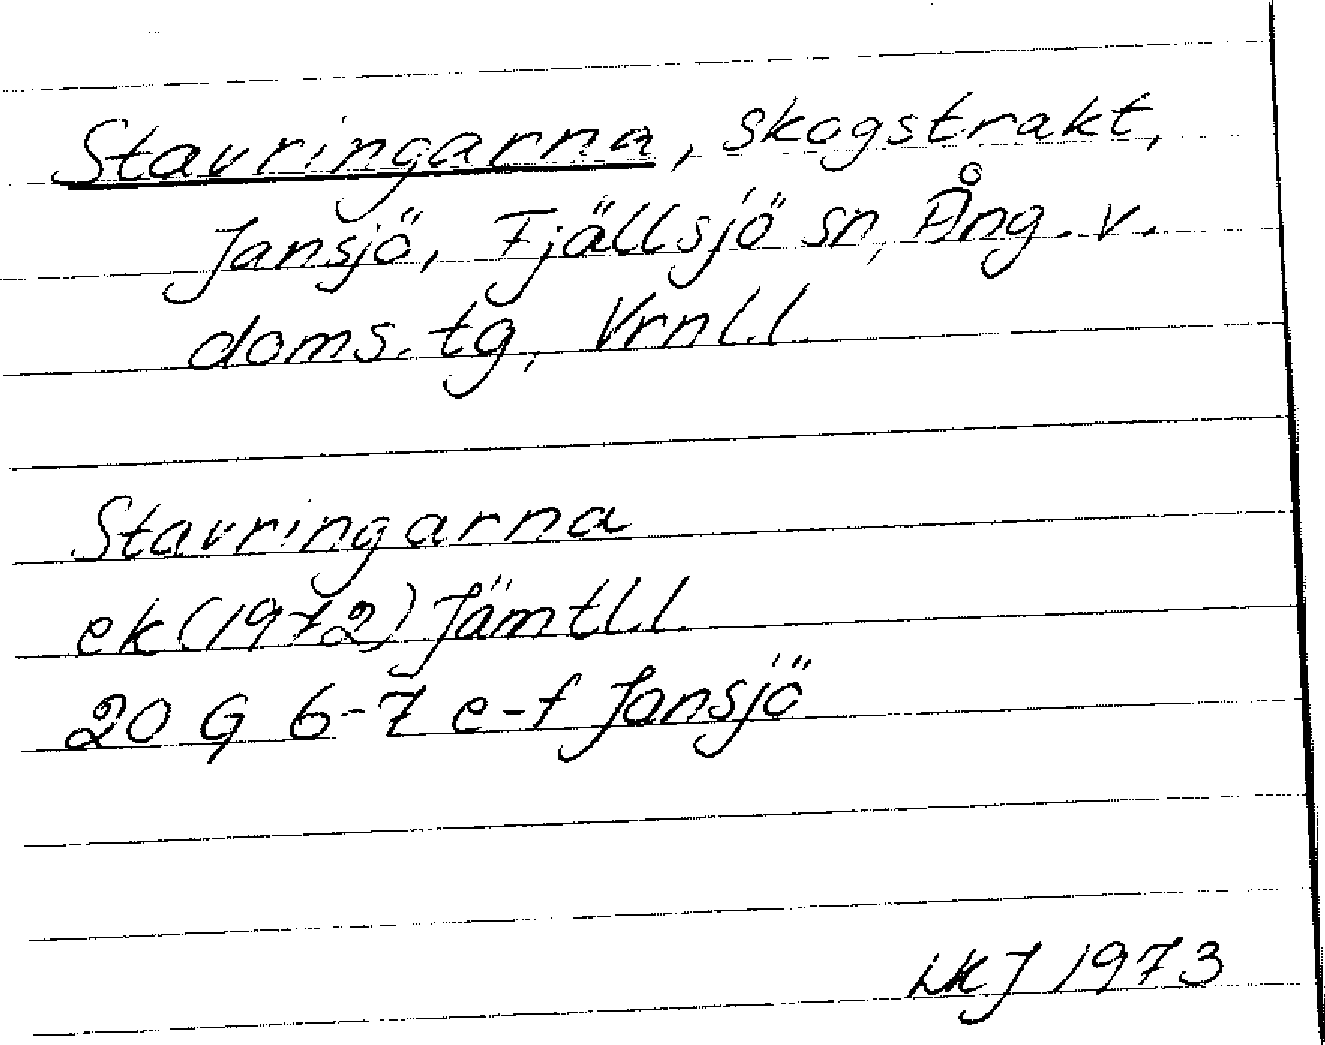 Stavringarna, skogstrakt,
Jansjö, Fjällsjö sn, Ång. v.
doms. tg, Vrnl.l.
Stavringarna
ek (1972) Jämtl.l.
20 G 6-7 e-f Jansjö
LKJ 1973